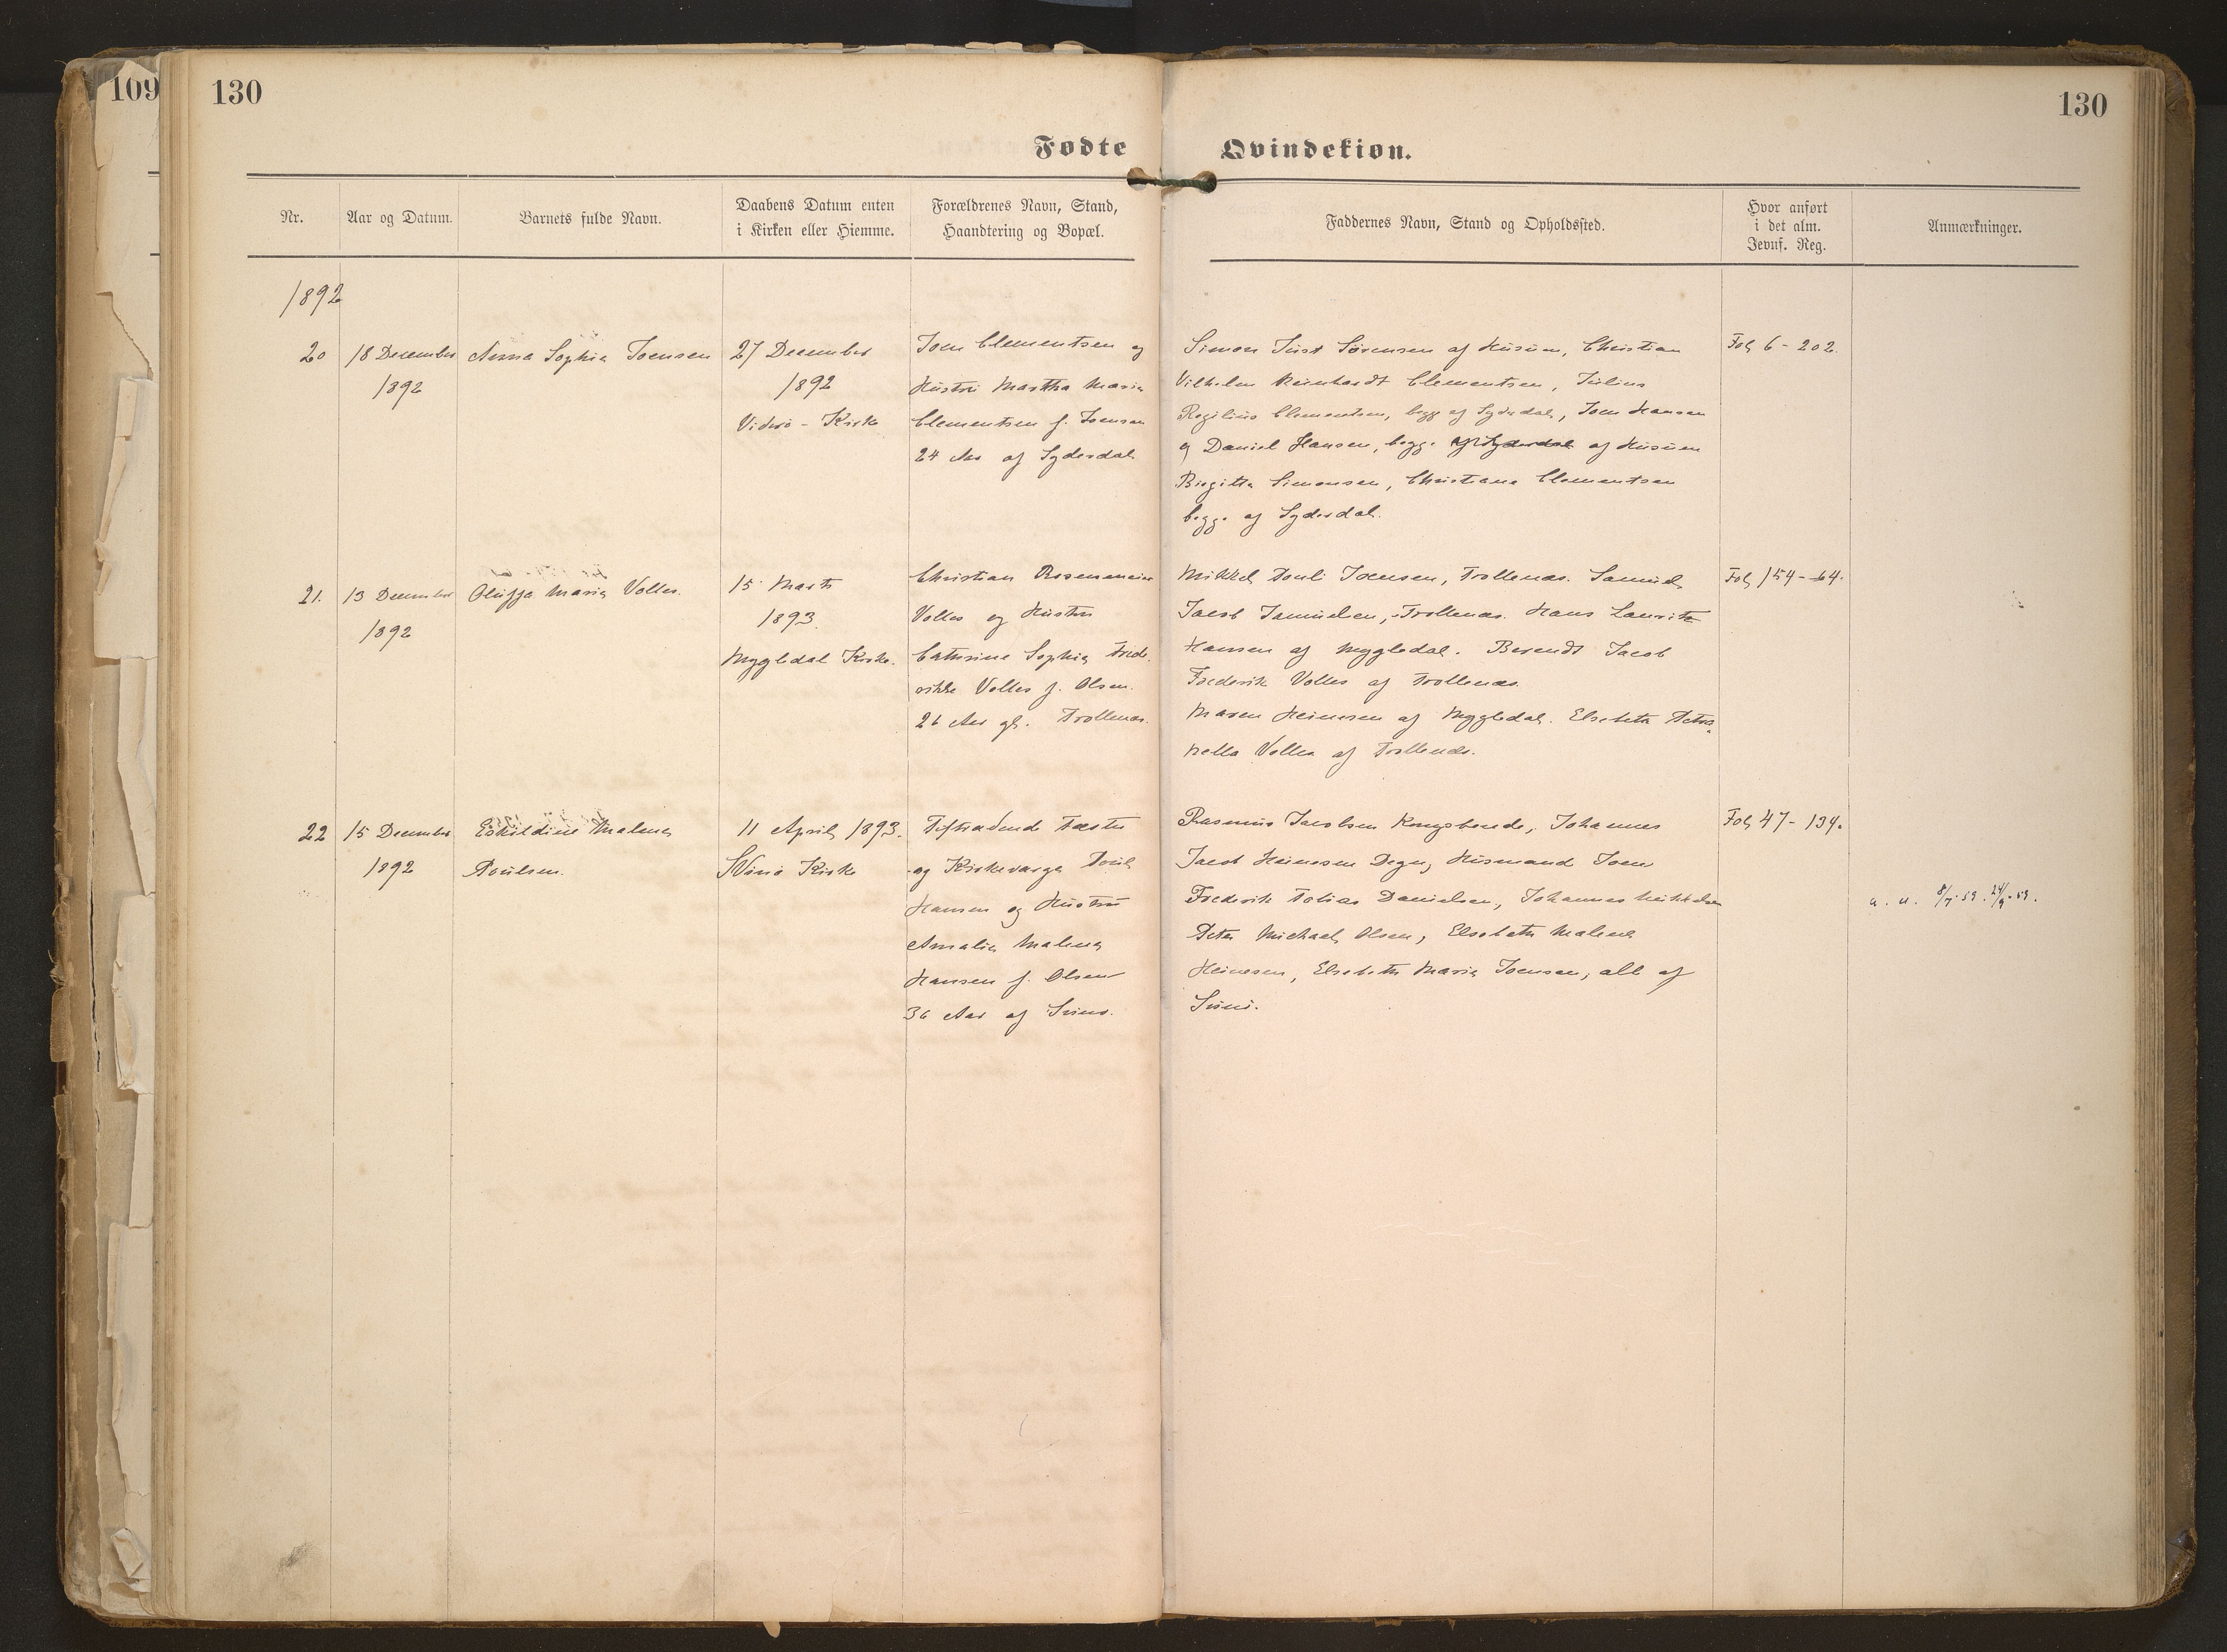 109
130
130
Fødte
Qvindekiøn.
Nr.
Aar og Datum.
Barnets fulde Navn.
Daabens Datum enten
i Kirken eller Hiemme.
Forældrenes Navn, Stand,
Haandtering og Bopæl.
Faddernes Navn, Stand og Opholdssted.
Hvor anført
i det alm.
Jevnf. Reg.
Anmærkninger.
1892
20
18 December
1892
Anna Sophia Joensen
27 December
1892
Viderø - Kirke
Joen Clementsen og
Hustru Martha Maria
Clementsen f. Joensen
24 Aar af Syderdal
Simon Just Sørensen af Husum, Christian
Vilhelm Reinhardt Clementsen, Julius
Regilius Clementsen, begge af Syderdal, Joen Hansen
og Daniel Hansen, begge af Syderdal af Husum
Birgitta Simonsen, Christiane Clementsen
begge af Syderdal.
Fol 6 - 202.
21.
13 December
1892
Oluffa Maria Volles.
15 Marts
1893
Mygledal Kirke.
Christian Rosenmeier
Volles og Hustru
Cathrine Sophia Frede-
rikke Volles f. Olsen.
26 Aar gl. Trollenæs.
Mikkel Pouli Joensen, Trollenæs. Samuel
Jacob Samuelsen, Trollenæs. Hans Lauritz
Hansen af Mygledal. Berendt Jacob
Frederik Volles af Trollenæs.
Maren Heinesen af Mygledal. Elsebeth Petro-
nella Volles af Trollenæs.
Fol 154 - 64.
22
15 December
1892
Eskildine Malena
Poulsen.
11 April 1893.
Svinø Kirke
Tiltrædende Fæster
og Kirkeværge Poul
Hansen og Hustru
Amalia Malena
Hansen f. Olsen
36 Aar af Svinø.
Rasmus Jacobsen Kongsbonde, Johannes
Jacob Heinesen Degn, Husmand Joen
Frederik Tobias Danielsen, Johannes Mikkelsen
Peter Michael Olsen, Elsebeth Malene
Heinesen, Elsebeth Maria Joensen, alle af
Svinø.
Fol 47 - 134.
a. u. 8/7.59. 24/9.59.